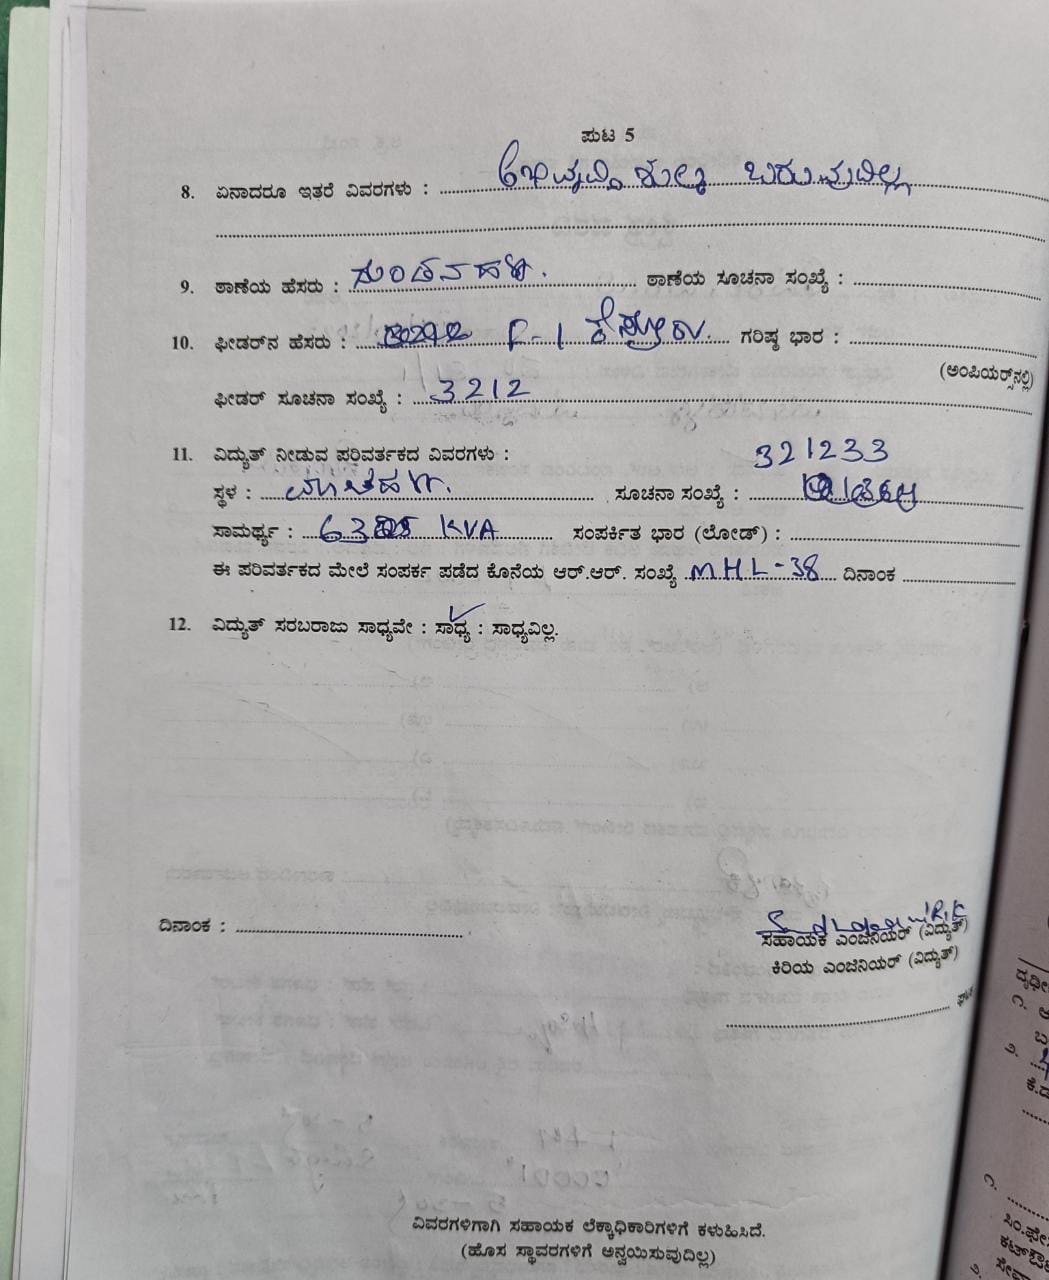 ಪುಟ 5
8. ಏನಾದರೂ ಇತರೆ ವಿವರಗಳು : ಅಭಿವೃದ್ಧಿ ಶುಲ್ಕ ಬರುವುದಿಲ್ಲ
9. ಠಾಣೆಯ ಹೆಸರು : ಠಾಣೆಯ ಸೂಚನಾ ಸಂಖ್ಯೆ :
10. ಫೀಡರ್‌ನ ಹೆಸರು : F-1 ಗರಿಷ್ಠ ಭಾರ :
(ಅಂಪಿಯರ್ಸ್‌ನಲ್ಲಿ)
ಫೀಡರ್ ಸೂಚನಾ ಸಂಖ್ಯೆ : 3212
11. ವಿದ್ಯುತ್ ನೀಡುವ ಪರಿವರ್ತಕದ ವಿವರಗಳು :
321233
ಸ್ಥಳ : ಸೂಚನಾ ಸಂಖ್ಯೆ :
ಸಾಮರ್ಥ್ಯ : 63 KVA ಸಂಪರ್ಕಿತ ಭಾರ (ಲೋಡ್) :
ಈ ಪರಿವರ್ತಕದ ಮೇಲೆ ಸಂಪರ್ಕ ಪಡೆದ ಕೊನೆಯ ಆರ್.ಆರ್. ಸಂಖ್ಯೆ MHL-38 ದಿನಾಂಕ
12. ವಿದ್ಯುತ್ ಸರಬರಾಜು ಸಾಧ್ಯವೇ : ಸಾಧ್ಯ : ಸಾಧ್ಯವಿಲ್ಲ.
ದಿನಾಂಕ :
ಸಹಾಯಕ ಎಂಜಿನಿಯರ್ (ವಿದ್ಯುತ್)
ಕಿರಿಯ ಎಂಜಿನಿಯರ್ (ವಿದ್ಯುತ್)
ವಿವರಗಳಿಗಾಗಿ ಸಹಾಯಕ ಲೆಕ್ಕಾಧಿಕಾರಿಗಳಿಗೆ ಕಳುಹಿಸಿದೆ.
(ಹೊಸ ಸ್ಥಾವರಗಳಿಗೆ ಅನ್ವಯಿಸುವುದಿಲ್ಲ)